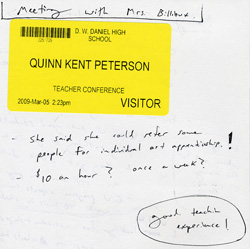 Meeting with Mrs. Billioux
D. W. DANIEL HIGH
SCHOOL
QUINN KENT PETERSON
TEACHER CONFERENCE
2009-Mar-05 2:23pm
VISITOR
- She said she could refer some
people for individual art apprenticeship.!
- $10 an hour? once a week?
good teachin
experience!